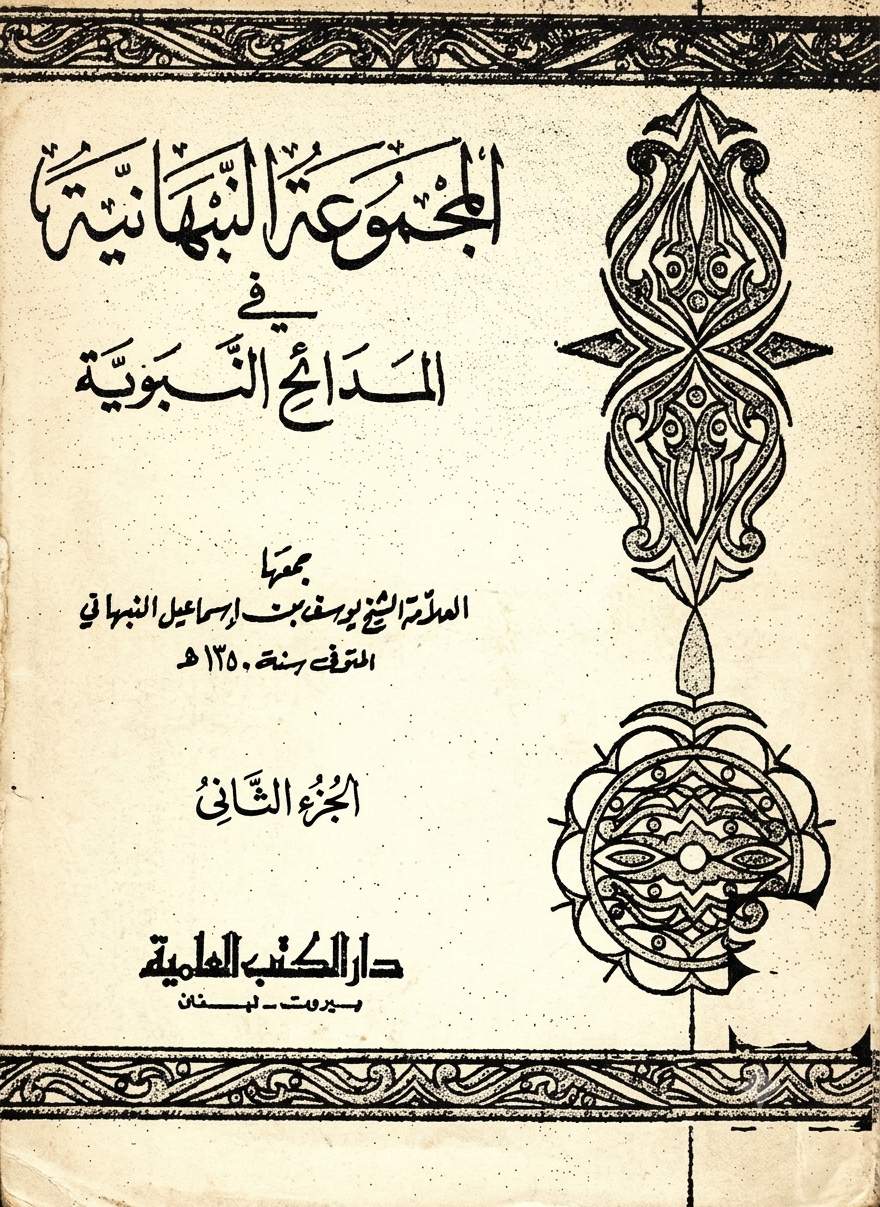 المَجْمُوعَةُ النَّبْهَانِيَّةُ
في
المَدَائِحِ النَّبَوِيَّة
جمعَها
العلّامة الشيخ يوسف بن إسماعيل النبهاني
المتوفى سنة ١٣٥٠ ه
الجُزُء الثَّانِىُ
دار الكتب العلمية
بيروت - لبنان